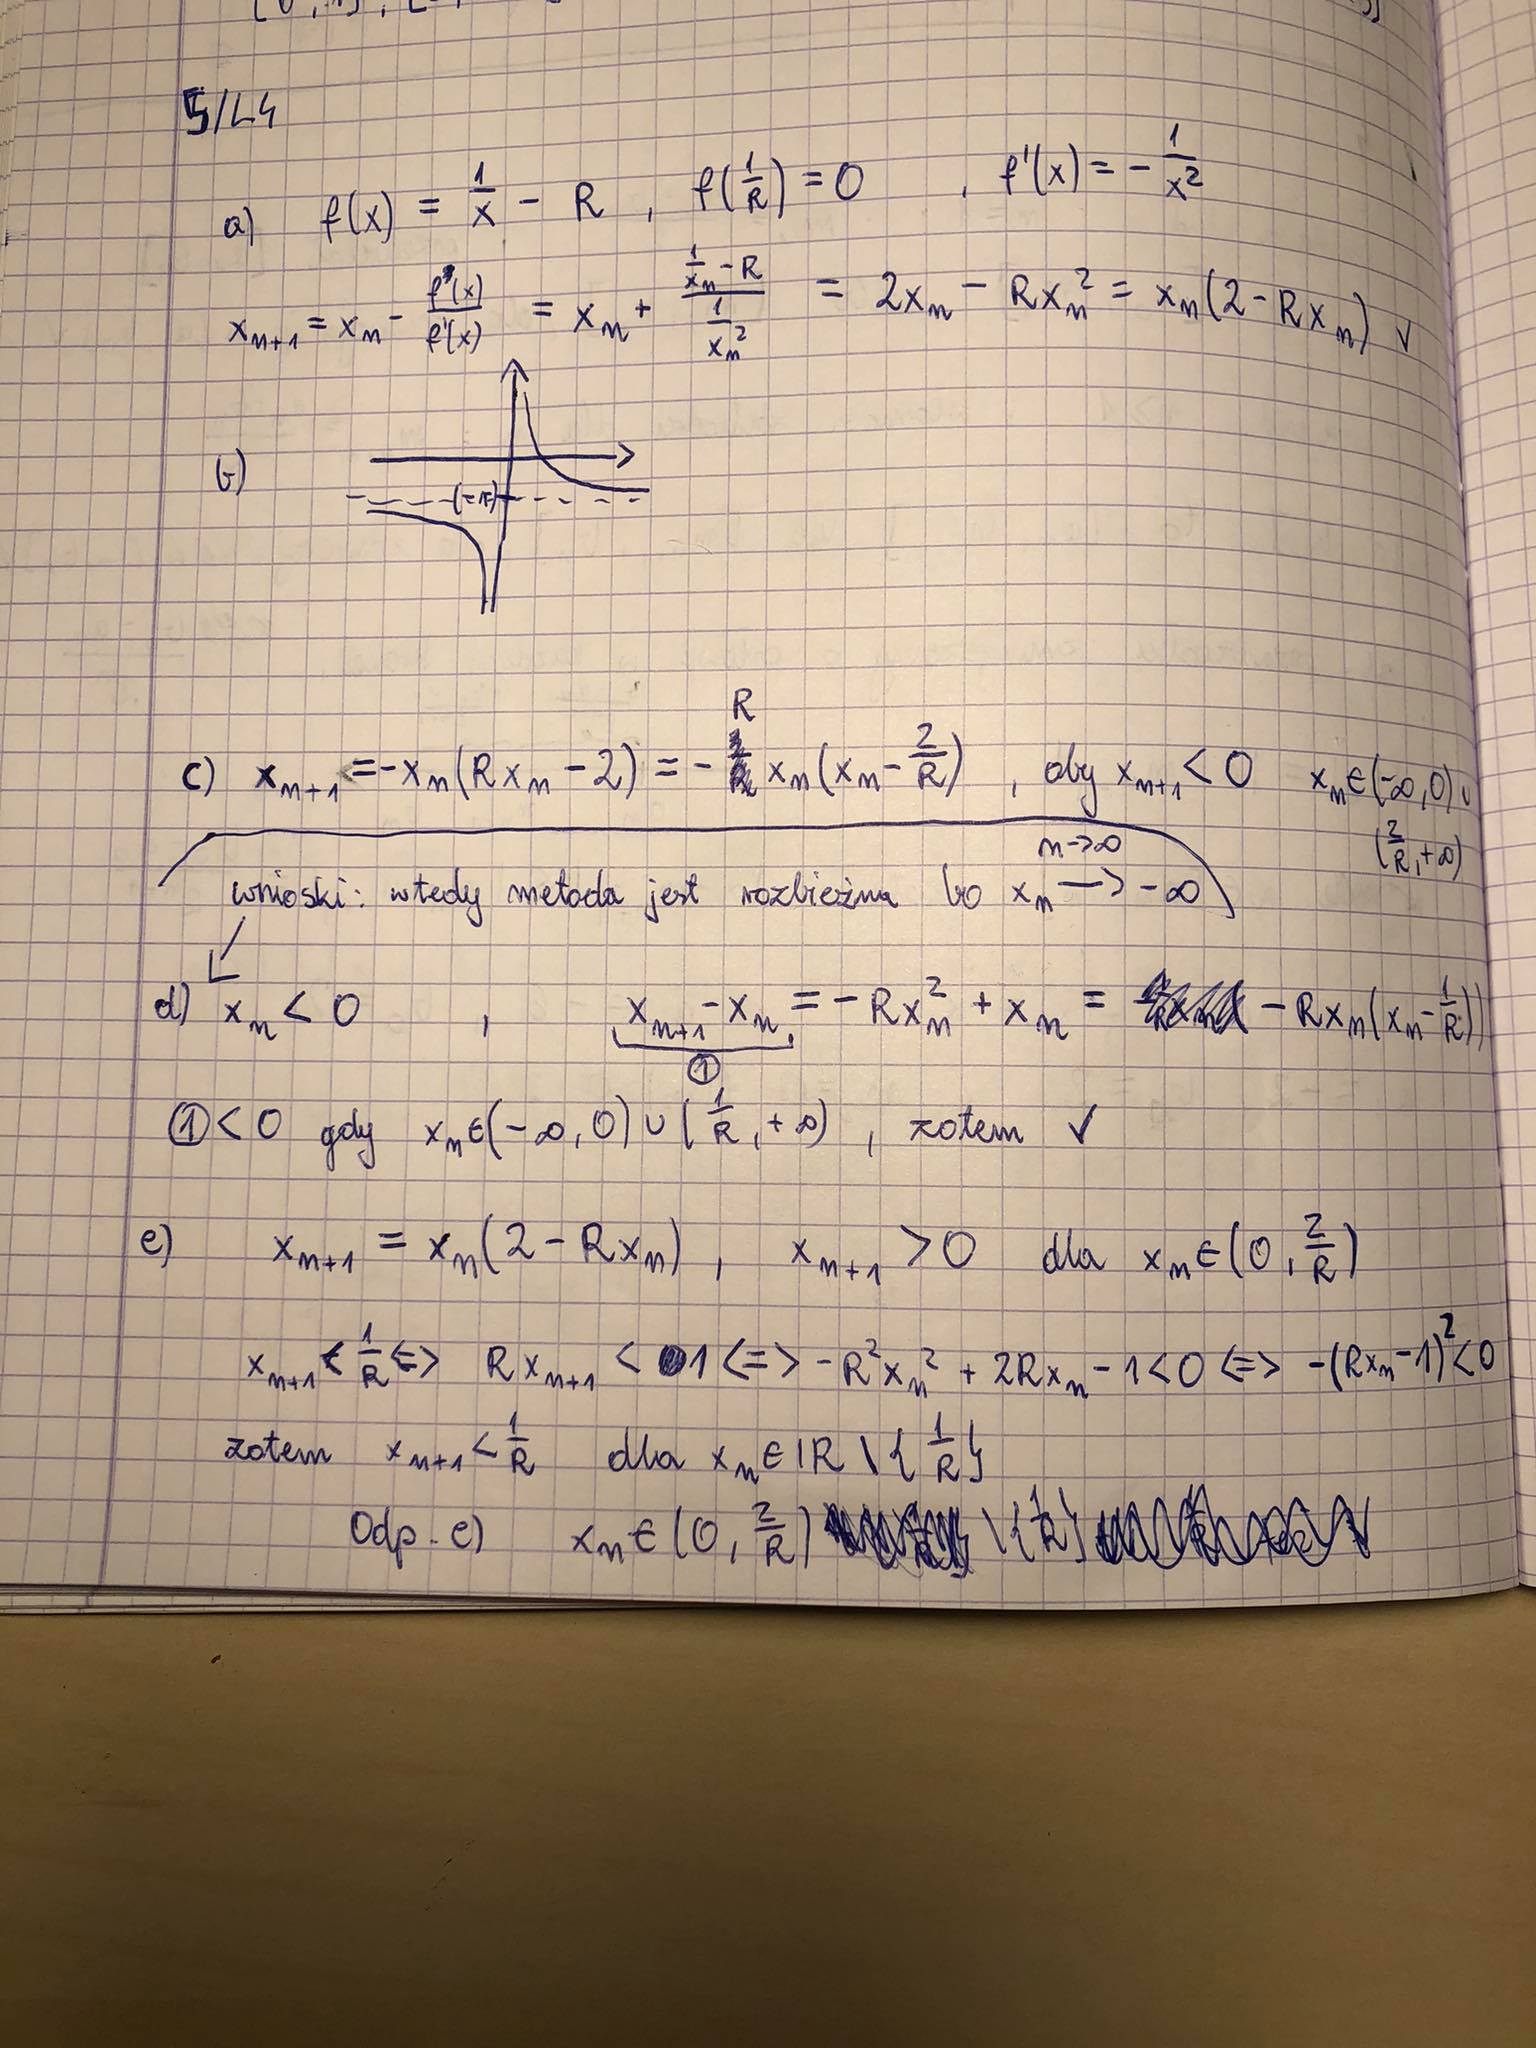 5/L4
a) f(x) = 1/x - R , f(1/R) = 0 , f'(x) = - 1/x²
xₙ₊₁ = xₙ - f(x)/f'(x) = xₙ + (1/xₙ - R)/(1/xₙ²) = 2xₙ - Rxₙ² = xₙ(2 - Rxₙ) √
b)
c) xₙ₊₁ = -xₙ(Rxₙ - 2) = - R xₙ(xₙ - 2/R) , aby xₙ₊₁ < 0 xₙ ∈ (-∞, 0) ∪
(2/R, +∞)
n→∞
wnioski: wtedy metoda jest rozbieżna bo xₙ → -∞
d) xₙ < 0 , xₙ₊₁ - xₙ = - Rxₙ² + xₙ = - Rxₙ(xₙ - 1/R))
①
① < 0 gdy xₙ ∈ (-∞, 0) ∪ (1/R, +∞) , zatem √
e) xₙ₊₁ = xₙ(2 - Rxₙ) , xₙ₊₁ > 0 dla xₙ ∈ (0, 2/R)
xₙ₊₁ < 1/R <=> Rxₙ₊₁ < 1 <=> -R²xₙ² + 2Rxₙ - 1 < 0 <=> -(Rxₙ - 1)² < 0
zatem xₙ₊₁ < 1/R dla xₙ ∈ ℝ \ {1/R}
Odp. e) xₙ ∈ (0, 2/R) \ {1/R}